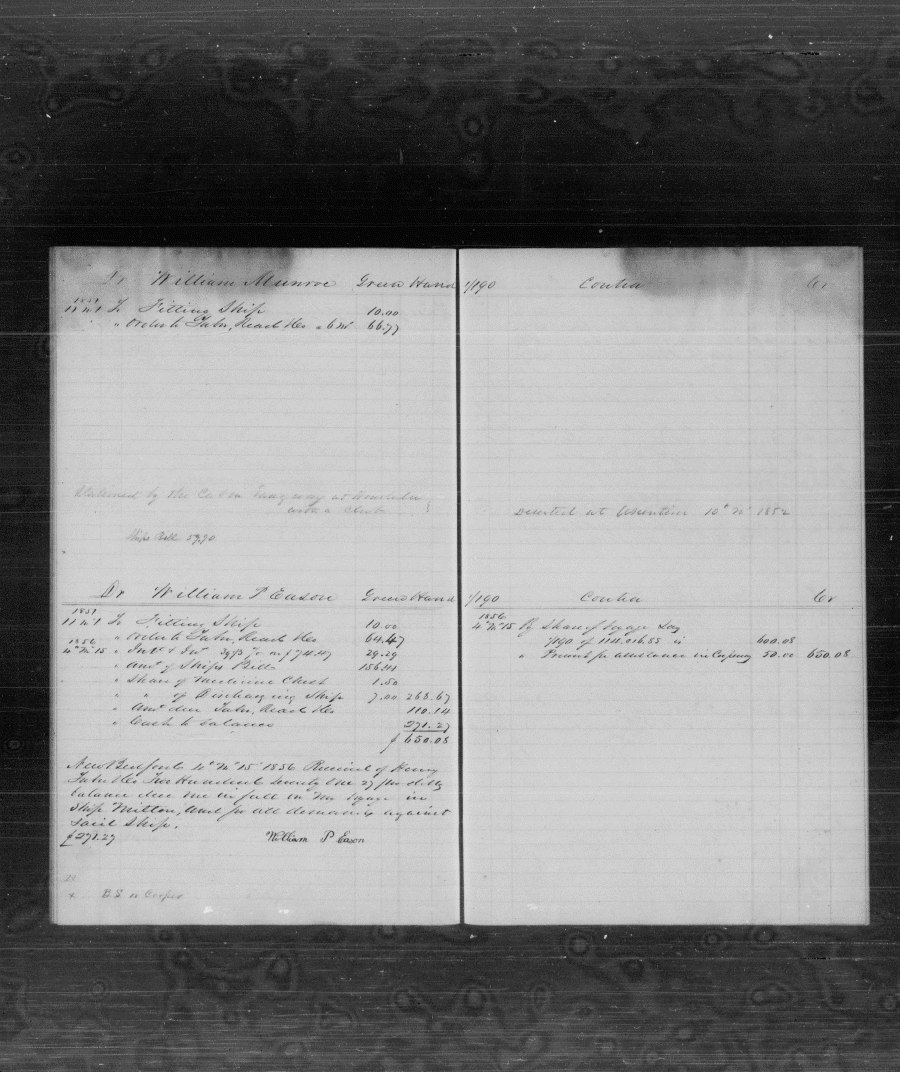 Dr William Munroe Green Hand 1/190 Contra Cr
1851
11 mo 1 To Fitting Ship 10.00
" Order to Taber, Read &Co 66.77
at
with a
Ships Bill 57.90
Deserted at 10 mo 1852
Dr William P Eason Green Hand 1/190 Contra Cr
1851
11 mo 1 To Fitting Ship 10.00
" Order to Taber, Read &Co 64.47
1856
4 mo 15 " Int & Ins on $74.47 29.29
" Amt of Ships Bill 156.41
" Share of Medicine Chest 1.50
" " of Discharging Ship 7.00 268.67
" Amt due Taber, Read &Co 110.14
" Cash to balance 271.27
$ 650.08
1856
4 mo 15 By Share of Voyage Lay
1/190 of 114,016.55 is 600.08
" Present for assistance in Coopering 50.00 650.08
New Bedford 4 mo 15 1856 Received of Henry
Taber &Co Two Hundred Seventy One 27/100 dolls
balance due me in full in my voyage in
Ship Milton, and for all demands against
said Ship.
$271.27 William P Eason